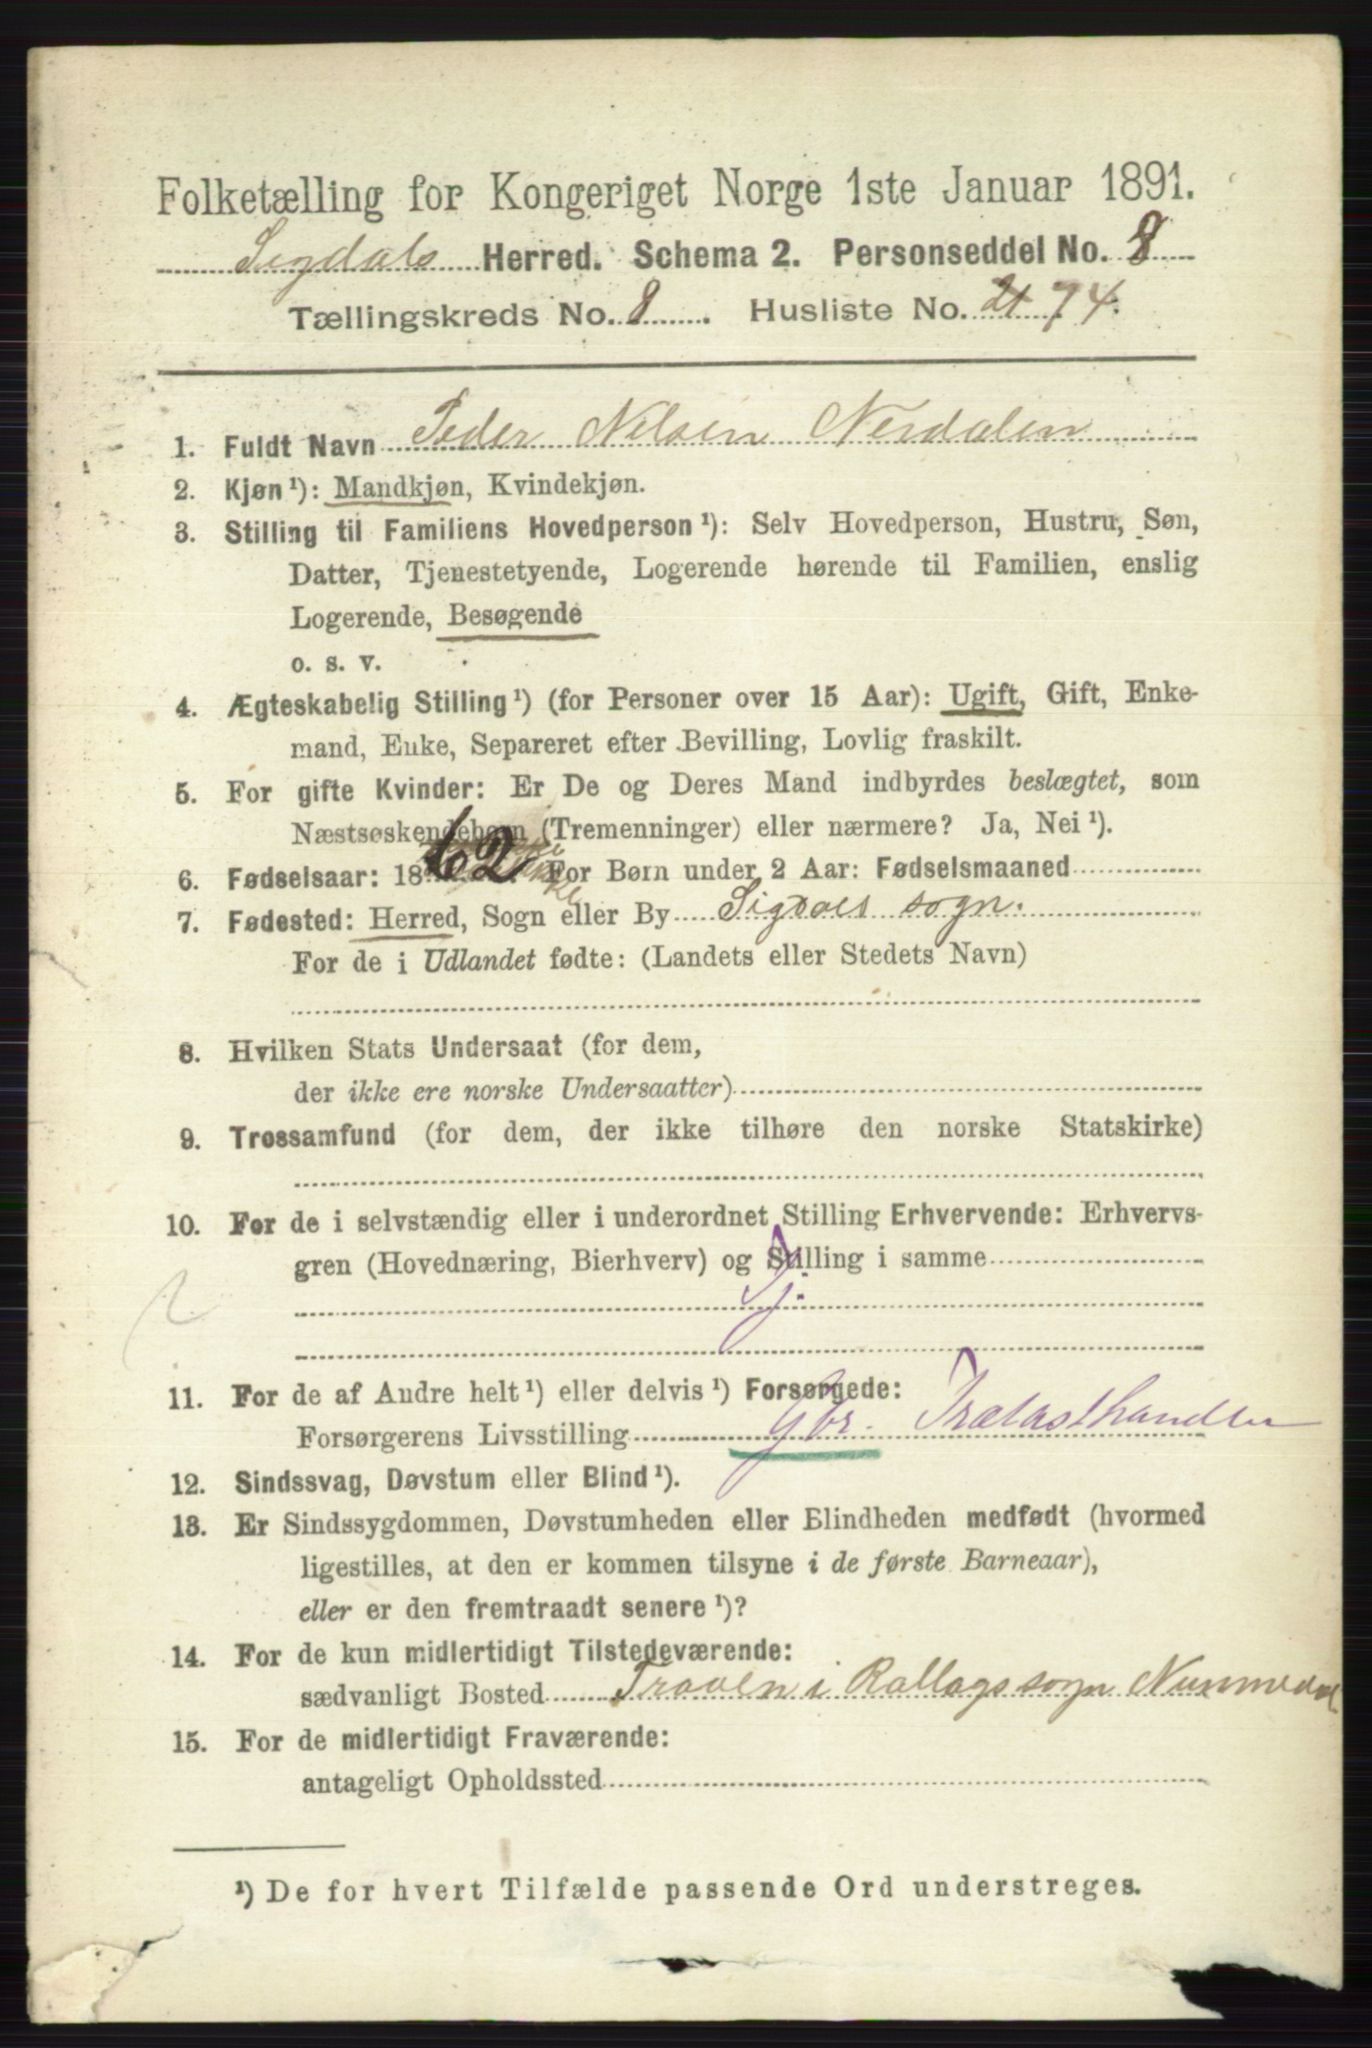 Folketælling for Kongeriget Norge 1ste Januar 1891.
Sigdals Herred. Schema 2. Personseddel No. 8
Tællingskreds No. 8. Husliste No. 74.
1. Fuldt Navn Peder Nilsen Nerdalen
2. Kjøn¹): Mandkjøn, Kvindekjøn.
3. Stilling til Familiens Hovedperson¹): Selv Hovedperson, Hustru, Søn,
Datter, Tjenestetyende, Logerende hørende til Familien, enslig
Logerende, Besøgende
o. s. v.
4. Ægteskabelig Stilling¹) (for Personer over 15 Aar): Ugift, Gift, Enke-
mand, Enke, Separeret efter Bevilling, Lovlig fraskilt.
5. For gifte Kvinder: Er De og Deres Mand indbyrdes beslægtet, som
Næstsøskendebørn (Tremenninger) eller nærmere? Ja, Nei¹).
6. Fødselsaar: 1862. For Børn under 2 Aar: Fødselsmaaned
7. Fødested: Herred, Sogn eller By Sigdals sogn.
For de i Udlandet fødte: (Landets eller Stedets Navn)
8. Hvilken Stats Undersaat (for dem,
der ikke ere norske Undersaatter)
9. Trossamfund (for dem, der ikke tilhøre den norske Statskirke)
10. For de i selvstændig eller i underordnet Stilling Erhvervende: Erhvervs-
gren (Hovednæring, Bierhverv) og Stilling i samme
Tj.
11. For de af Andre helt¹) eller delvis¹) Forsørgede:
Forsørgerens Livsstilling Gbr. Trælasthandler
12. Sindssvag, Døvstum eller Blind¹).
13. Er Sindssygdommen, Døvstumheden eller Blindheden medfødt (hvormed
ligestilles, at den er kommen tilsyne i de første Barneaar),
eller er den fremtraadt senere¹)?
14. For de kun midlertidigt Tilstedeværende:
sædvanligt Bosted Traaen i Rollags sogn Nummedal
15. For de midlertidigt Fraværende:
antageligt Opholdssted
¹) De for hvert Tilfælde passende Ord understreges.